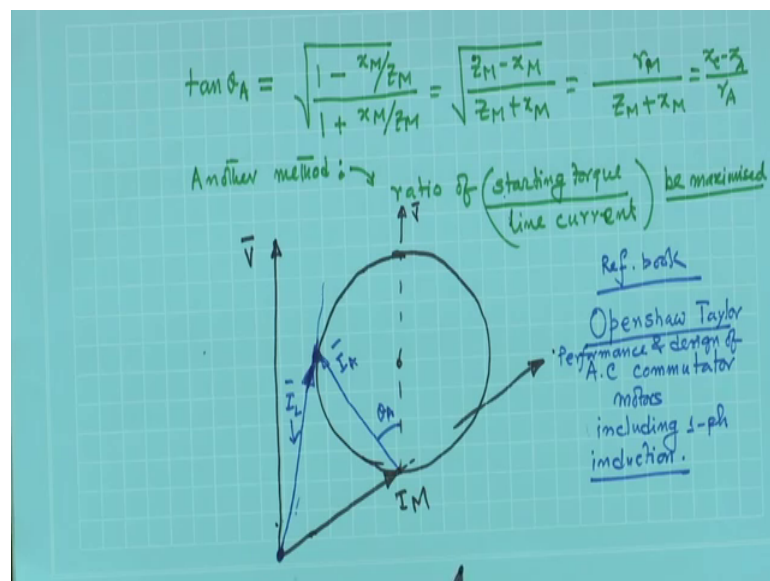 tan θ_A = √((1 - x_M/z_M)/(1 + x_M/z_M)) = √((z_M - x_M)/(z_M + x_M)) = r_M/(z_M + x_M) = (x_c - x_A)/r_A
Another method :→ ratio of (starting torque / line current) be maximised
V̄
V̄
Ref. book
Openshaw Taylor
Performance & design of
A.C commutator
motors
including 1-ph
induction.
Ī_A
Ī_L
θ_A
I_M